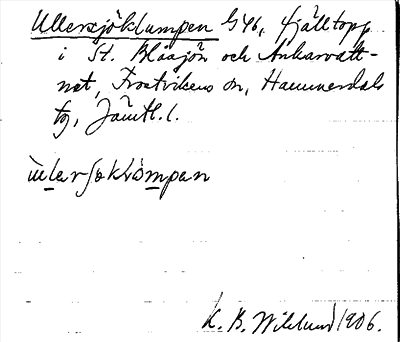 Ullersjöklumpen G46, fjälltopp
i St. Blåsjön och Ankarvatt-
net, Frostvikens sn, Hammerdals
tg, Jämtl. l.
K. B. Wiklund 1906.